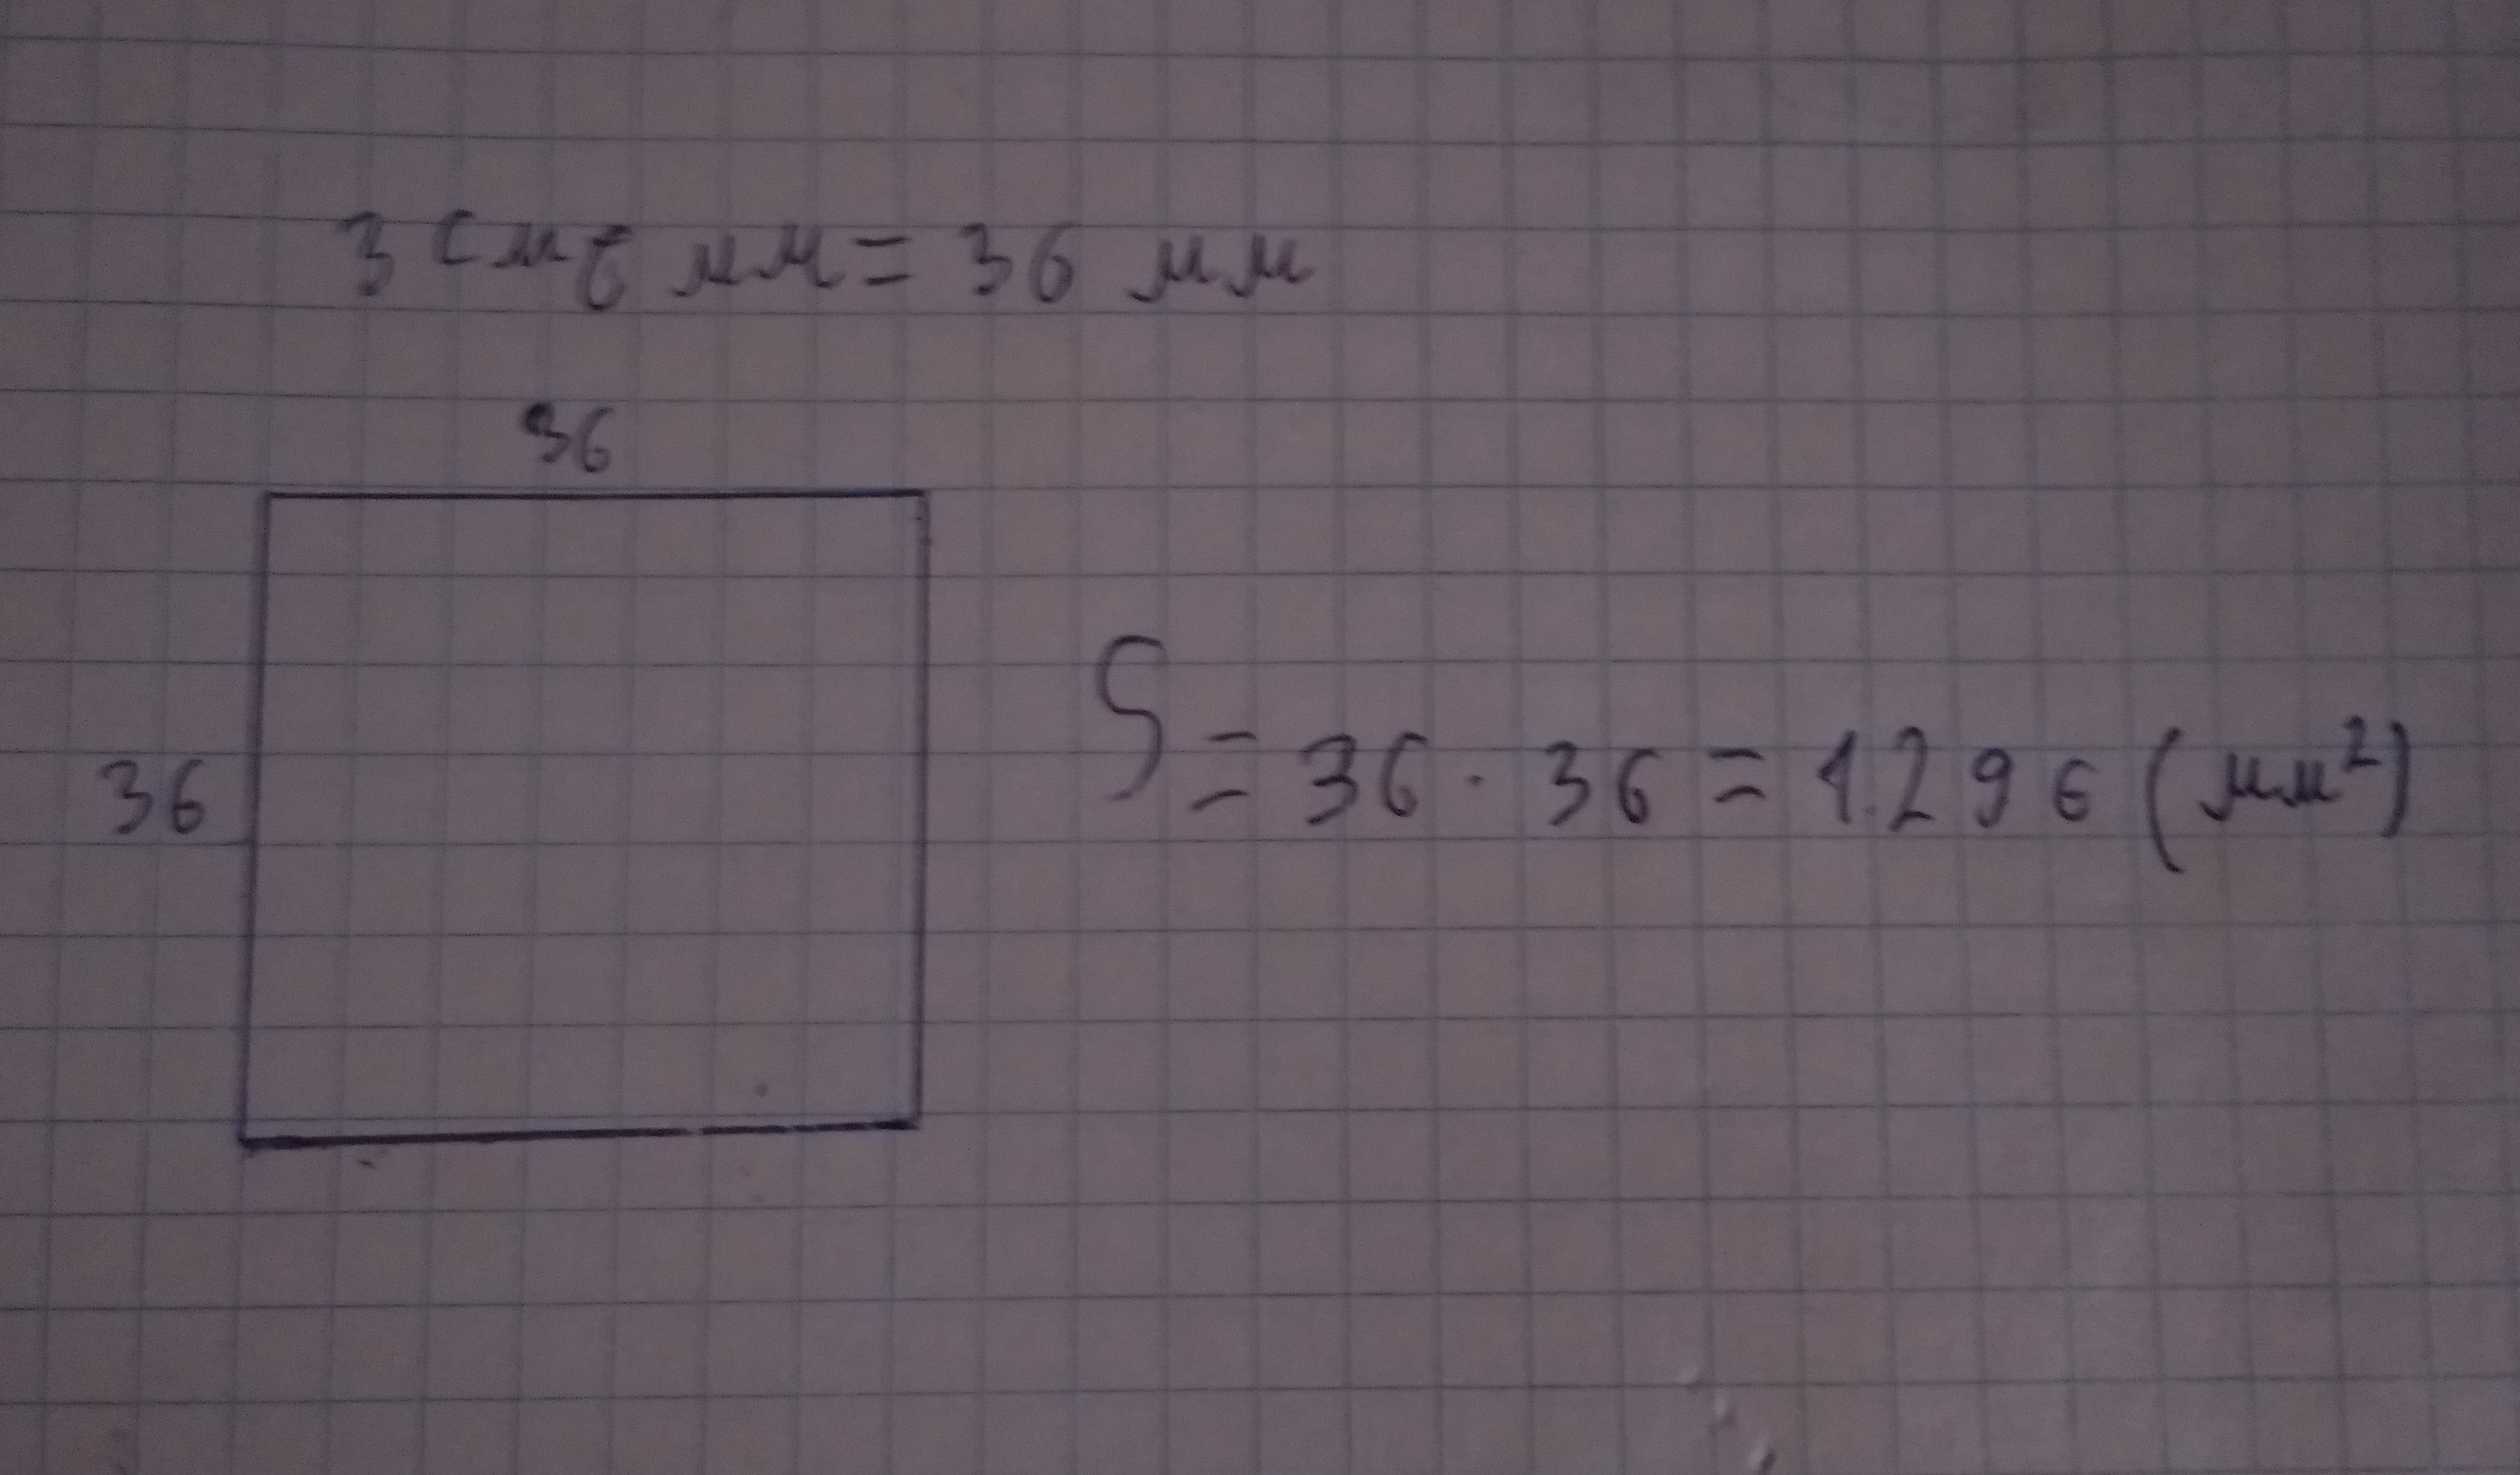 3 см 6 мм = 36 мм
36
36
S = 36 · 36 = 1296 (мм²)